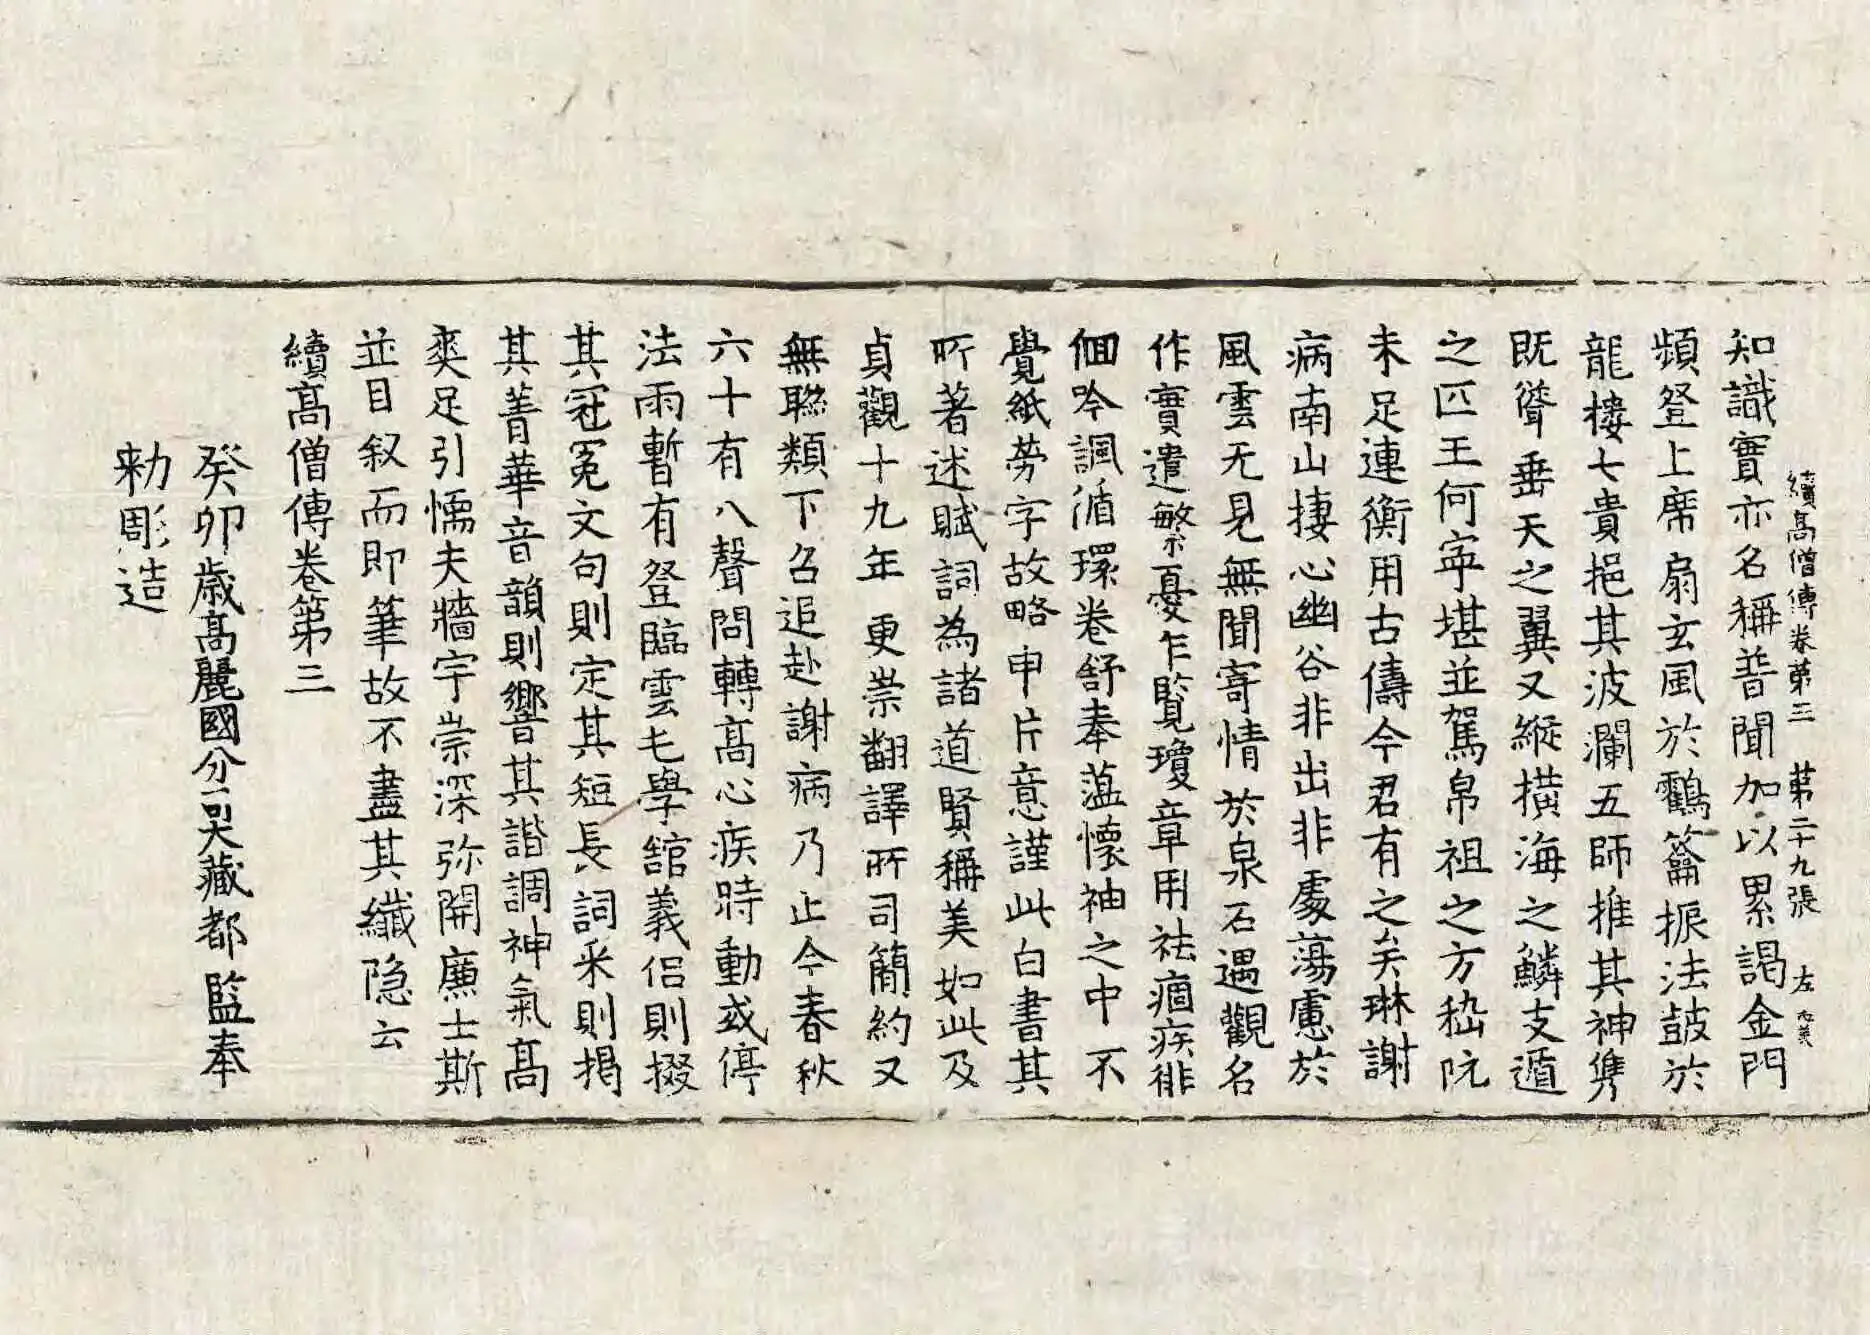 續高僧傳卷第三 第二十九張 左
知識實亦名稱普聞加以累謁金門
頻登上席扇玄風於鸛籥振法鼓於
龍樓七貴挹其波瀾五師推其神雋
既聳垂天之翼又縱橫海之鱗支遁
之匹王何寧堪並駕帛祖之方嵇阮
未足連衡用古儔今君有之矣琳謝
病南山捿心幽谷非出非處蕩慮於
風雲无見無聞寄情於泉石遇觀名
作實遣繁憂乍覽瓊章用祛痼疾徘
佪吟諷循環卷舒奉薀懷袖之中不
覺紙勞字故略申片意謹此白書其
所著述賦詞為諸道賢稱美如此及
貞觀十九年更崇翻譯所司簡約又
無聯類下召追赴謝病乃止今春秋
六十有八聲問轉高心疾時動或停
法雨暫有登臨雲乇學館義侶則掇
其冠冕文句則定其短長詞采則揭
其菁華音韻則響其諧調神氣高
爽足引懦夫牆宇崇深弥開廉士斯
並目叙而即筆故不盡其纖隐云
續高僧傳卷第三
癸卯歲高麗國分司大藏都監奉
勑彫造